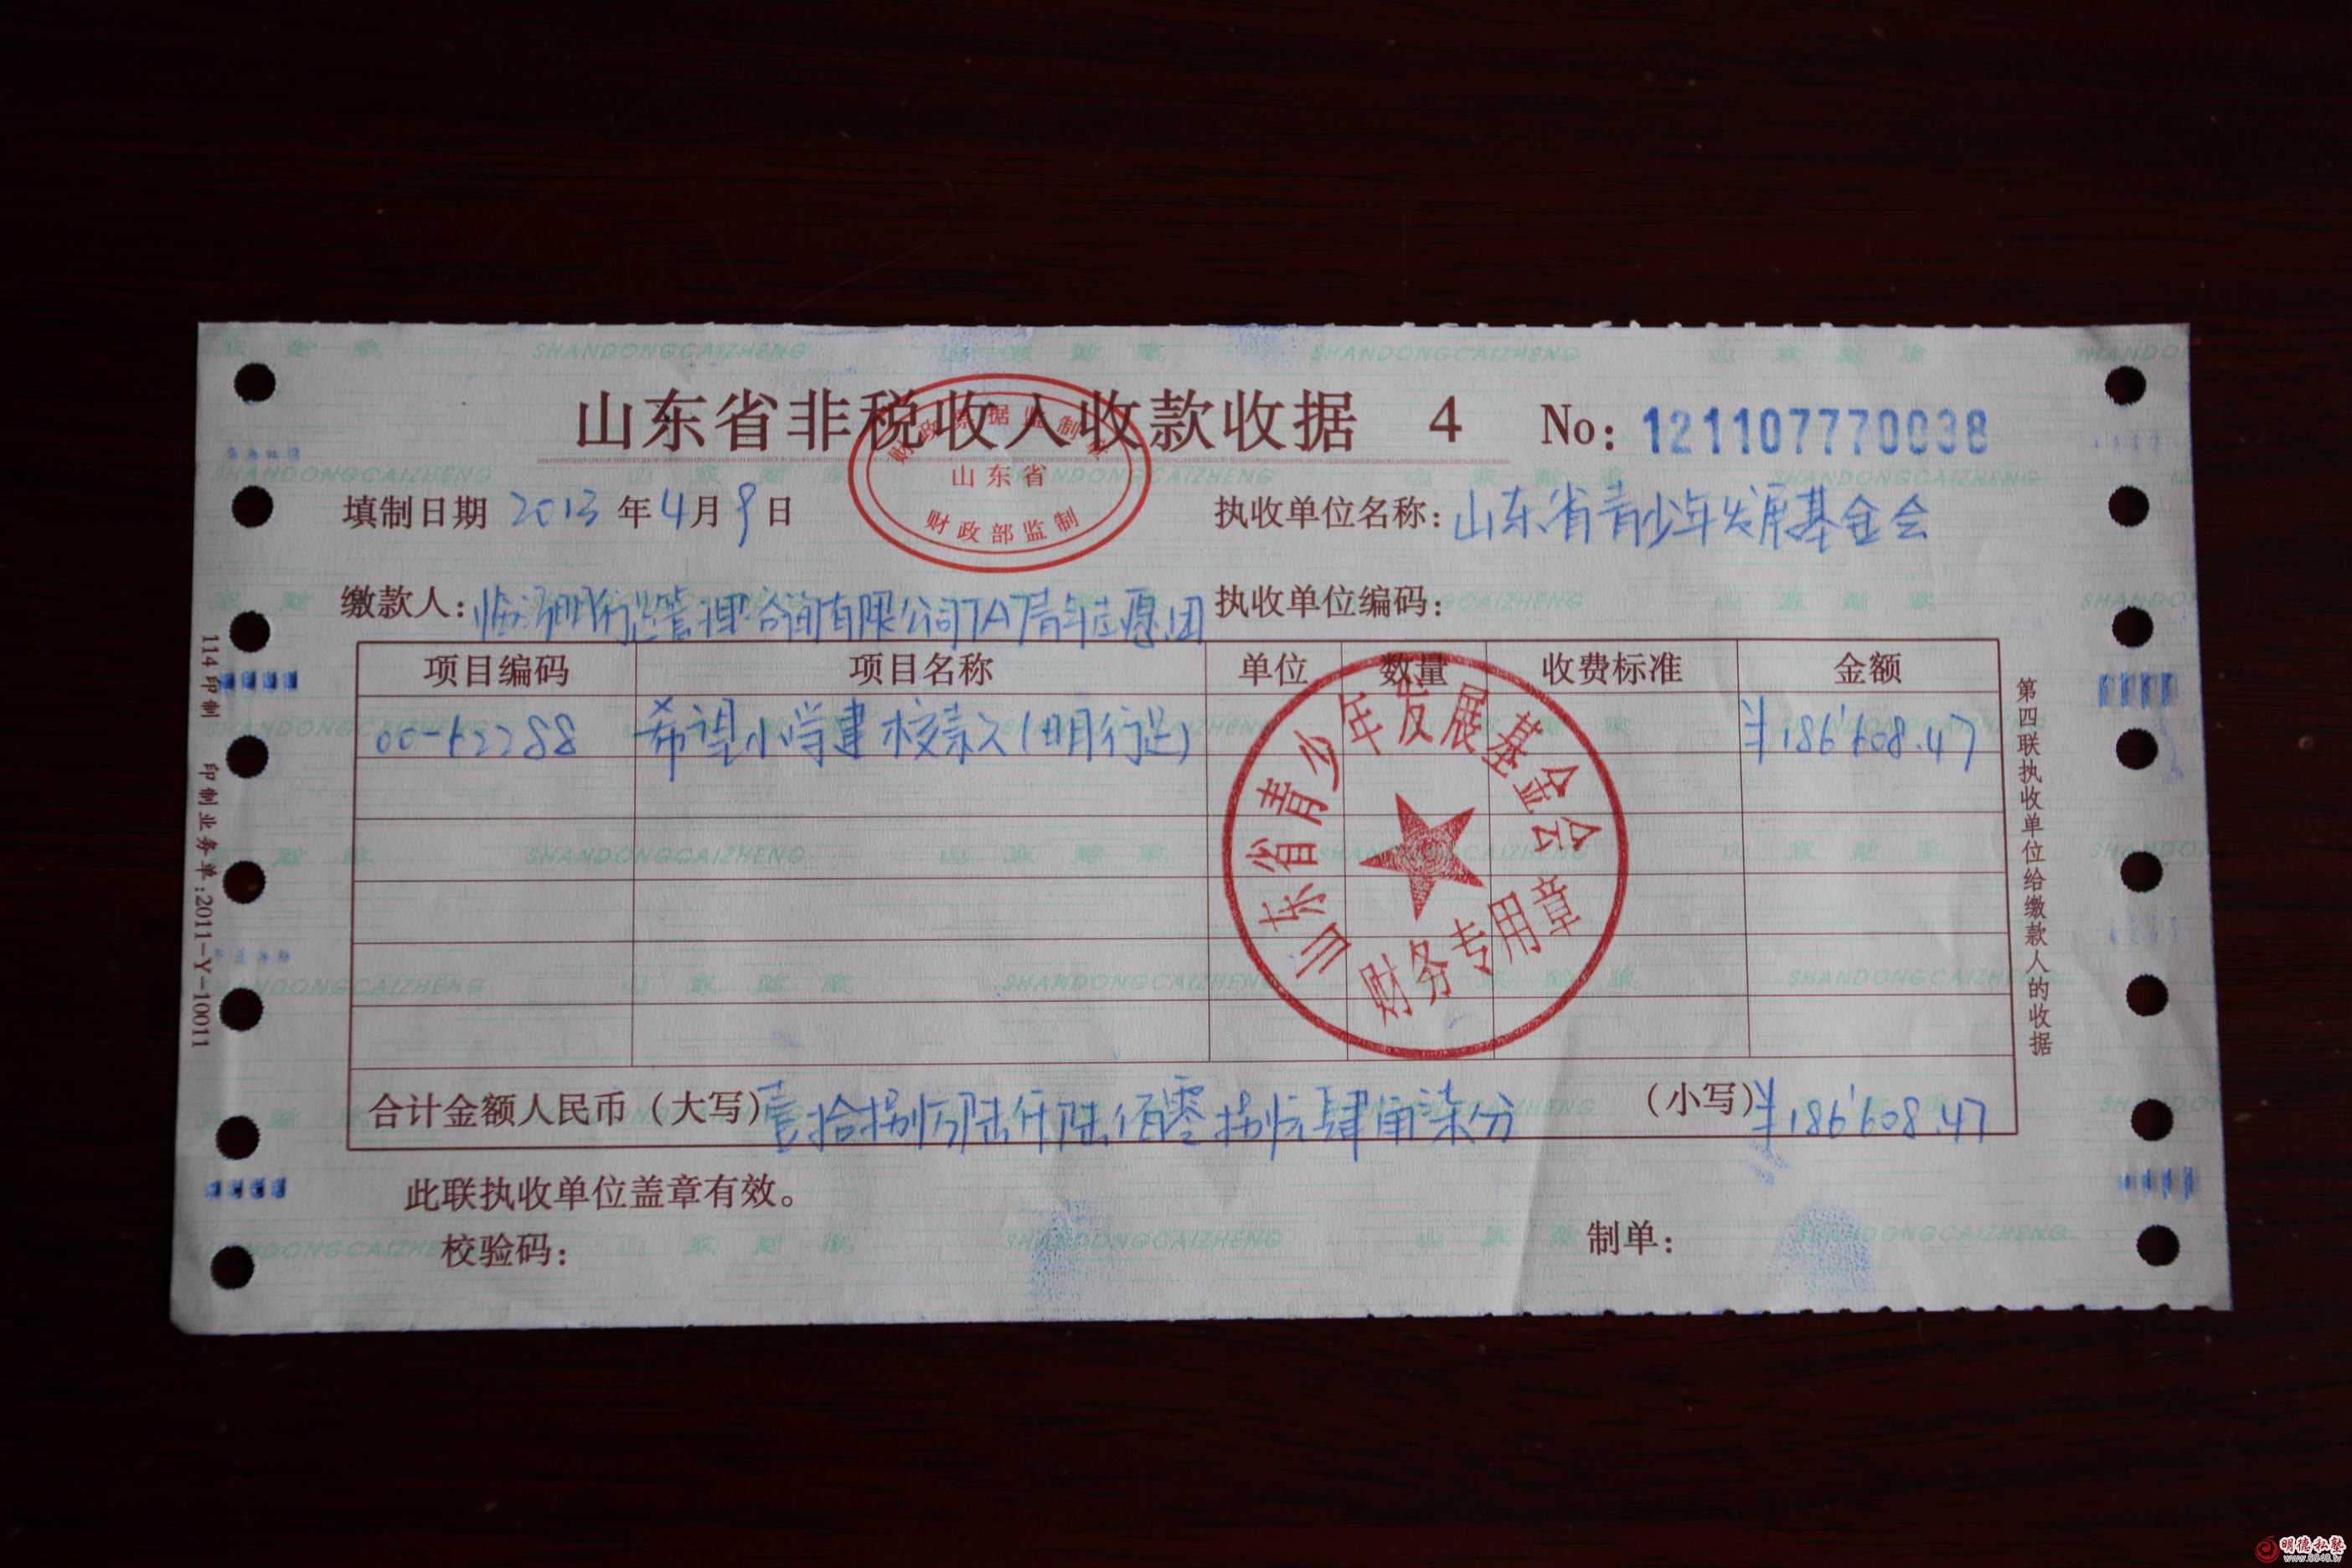 山东省非税收入收款收据 4 No: 121107770038
财政票据监制章
山东省
财政部监制
填制日期 2013 年 4 月 9 日
执收单位名称: 山东省青少年发展基金会
缴款人: 管理咨询有限公司TA青年志愿团
执收单位编码:
项目编码 项目名称 单位 数量 收费标准 金额
希望小学建校款(明行足) ¥186'608.47
山东省青少年发展基金会
财务专用章
合计金额人民币(大写) 壹拾捌万陆仟陆佰零捌元肆角柒分 (小写) ¥186'608.47
此联执收单位盖章有效。
校验码:
制单:
114印制 印制业务单:2011-Y-10011
第四联执收单位给缴款人的收据
SHANDONGCAIZHENG
明德私塾